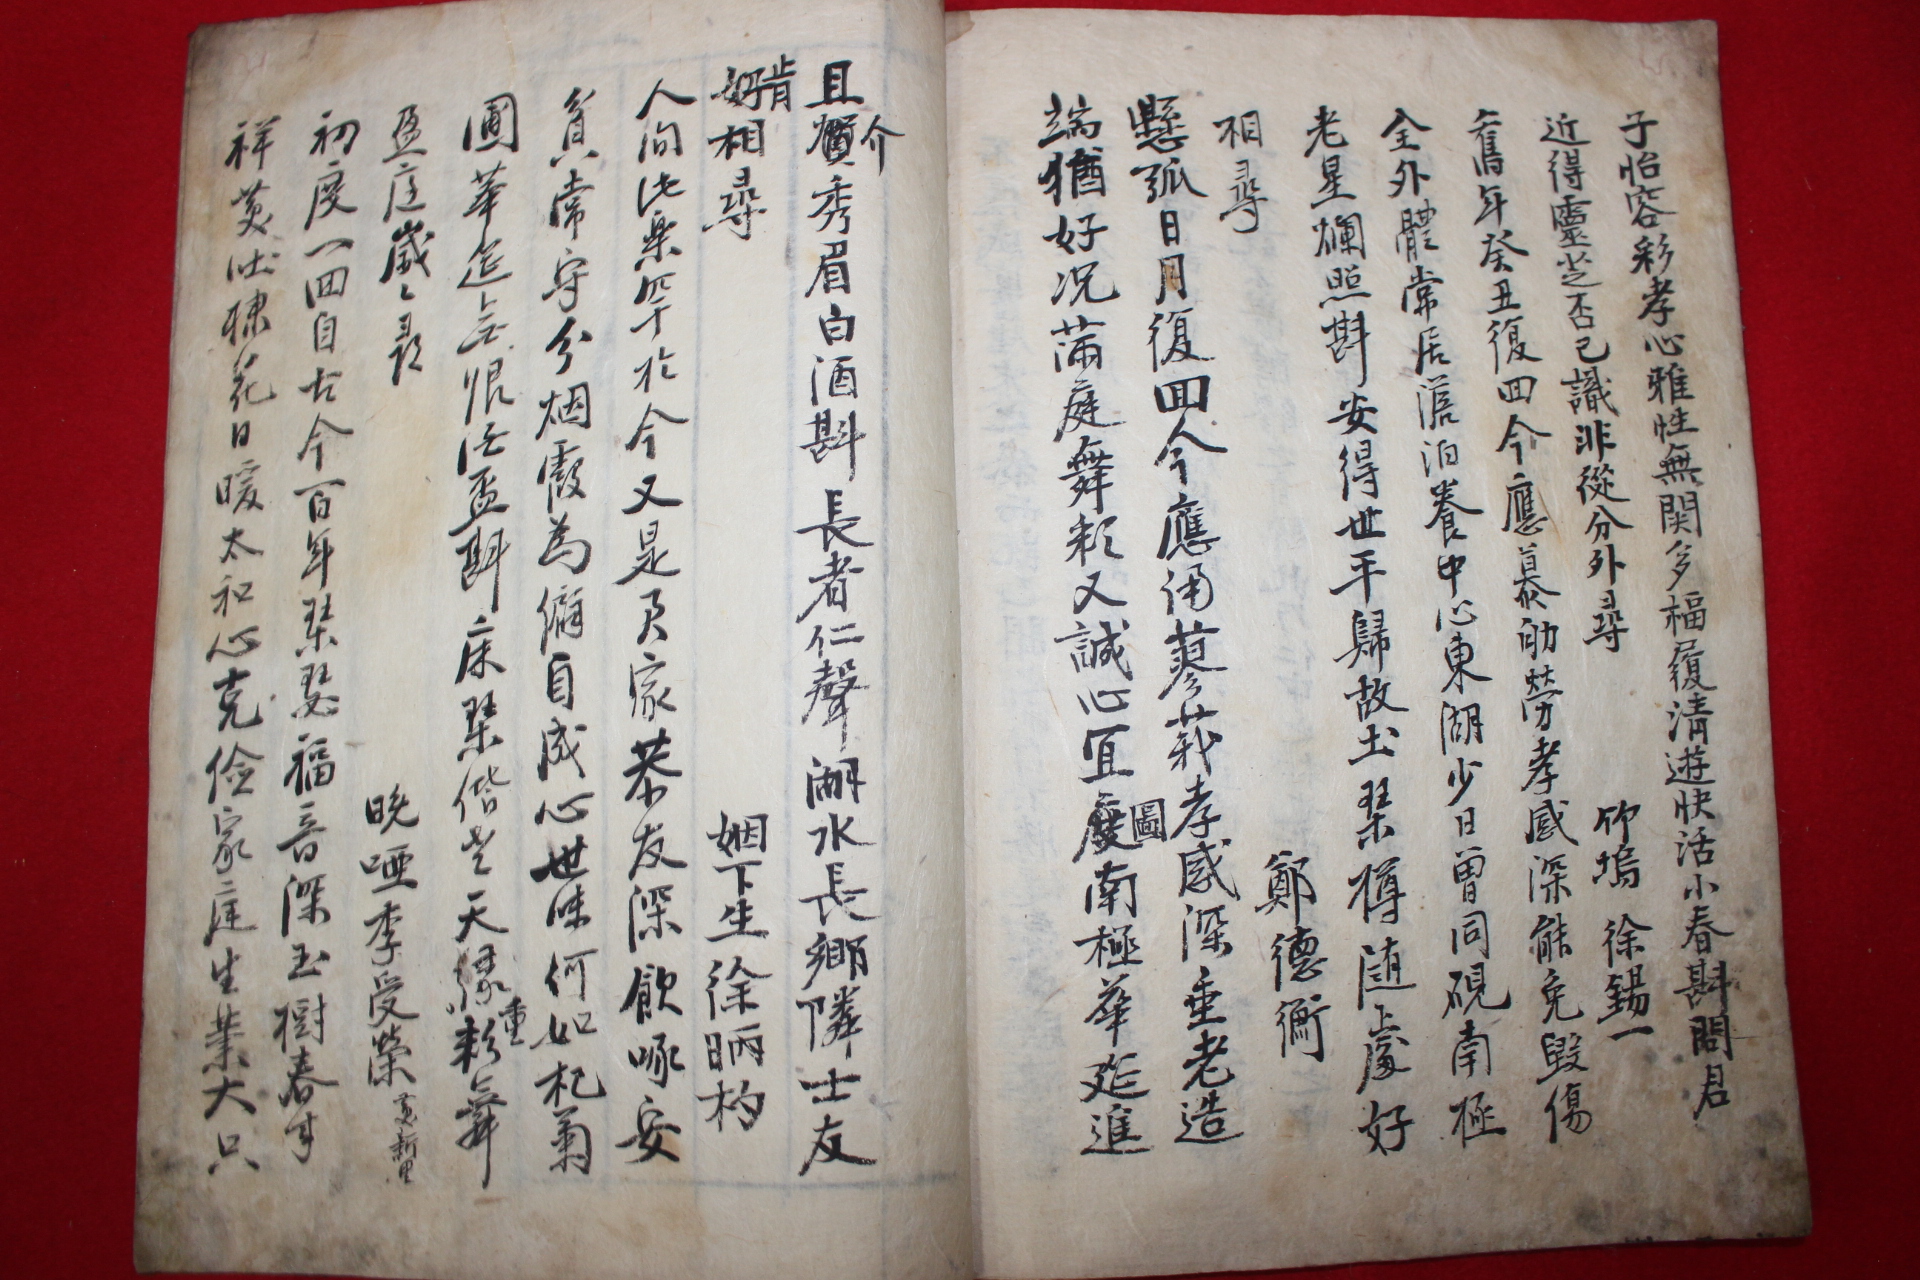 子怡容彩孝心雅性無関多福履清遊快活小春斟問君
近得靈芝否已識非從分外尋
竹塢 徐錫一
舊年癸丑復回今應慕劬勞孝感深能免毀傷
全外體常居澹泊養中心東湖少日曽同硯南極
老星爛照斟安得世平歸故土琴樽随處好
相尋
鄭德衡
懸弧日月復回今應誦蓼莪孝感深垂老造
端猶好况滿庭舞彩又誠心宜圖慶南極華筵進
且介賸秀眉白酒斟長者仁聲湖水長鄉隣士友
肯好相尋
姻下生徐昞杓
人间此樂罕於今又是君家恭友深飲啄安
貧常守分烟霞為癖自成心世味何如杞菊
圃華筵上無恨酒盃斟床琴偕老天緣重彩舞
盈庭歲歲尋
晩啞李受榮
初度一回自古今百年琴瑟福音深玉樹春
祥 棣花日暖太和心克儉家庭生業大只